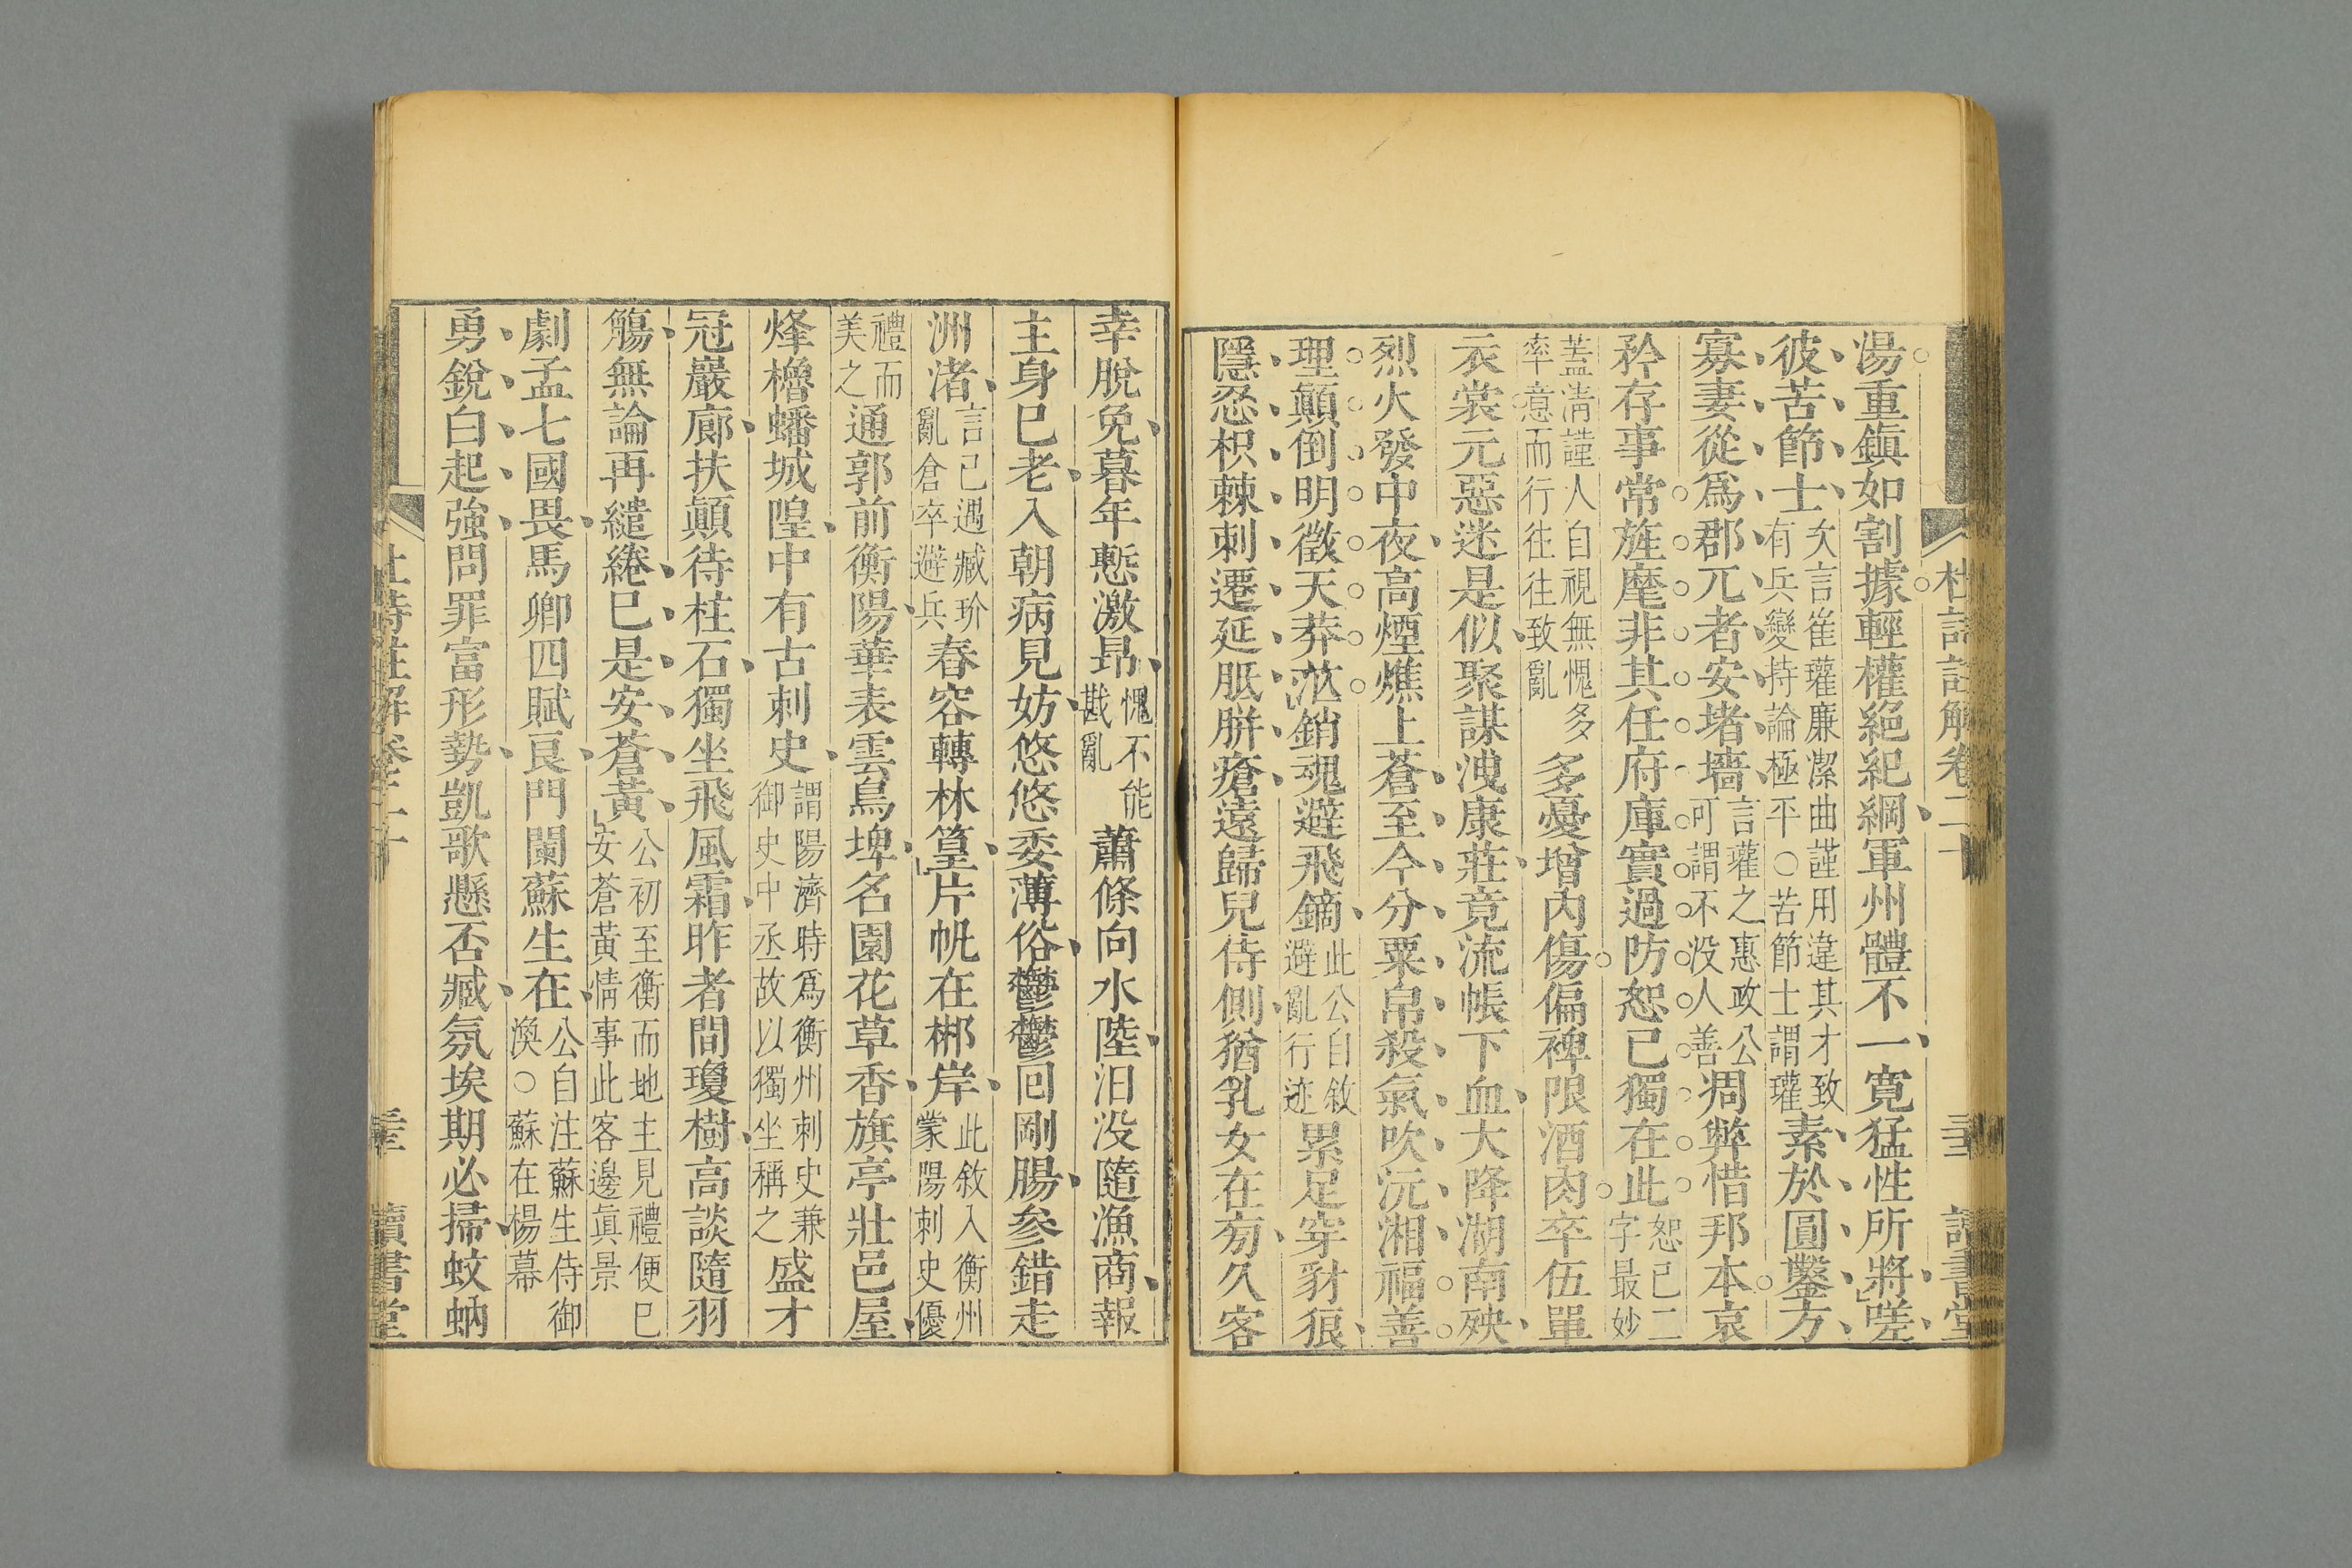 杜詩註解卷二十
讀書堂
湯重鎮如割據輕權絕紀綱軍州體不一寬猛性所將嗟
彼苦節士
次言崔瓘廉潔曲謹用違其才致
有兵變持論極平○苦節士謂瓘
素於圓鑿方
寡妻從爲郡兀者安堵墻
言瓘之惠政公
可謂不没人善
凋弊惜邦本哀
矜存事常旌麾非其任府庫實過防恕已獨在此
恕已二
字最妙
蓋淸謹人自視無愧多
率意而行往往致亂
多憂增內傷偏裨限酒肉卒伍單
衣裳元惡迷是似聚謀洩康莊竟流帳下血大降湖南殃
烈火發中夜高煙燋上蒼至今分粟帛殺氣吹沅湘福善
理顛倒明徵天莽茫銷魂避飛鏑
此公自敘
避亂行迹
累足穿豺狼
隱忍枳棘刺遷延胝胼瘡遠歸兒侍側猶乳女在旁久客
幸脫免暮年慙激昻
愧不能
戡亂
蕭條向水陸汨没隨漁商報
主身巳老入朝病見妨悠悠委薄俗鬱鬱囘剛腸參錯走
洲渚
言己遇臧玠
亂倉卒避兵
春容轉林篁片帆在郴岸
此敘入衡州
蒙陽刺史優
禮而
美之
通郭前衡陽華表雲鳥埤名園花草香旗亭壯邑屋
烽櫓蟠城隍中有古刺史
謂陽濟時爲衡州刺史兼
御史中丞故以獨坐稱之
盛才
冠巖廊扶顛待柱石獨坐飛風霜昨者間瓊樹高談隨羽
觴無論再繾綣巳是安蒼黃
公初至衡而地主見禮便巳
安蒼黃情事此客邊眞景
劇孟七國畏馬卿四賦良門闌蘇生在
公自注蘇生侍御
渙○蘇在楊幕
勇銳白起強問罪富形勢凱歌懸否臧氛埃期必掃蚊蚋
讀書堂